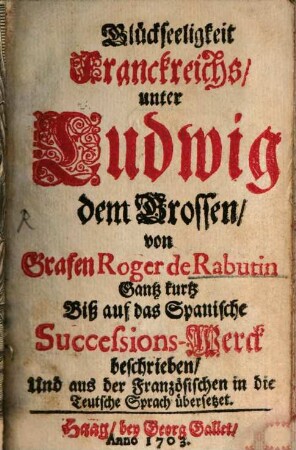 Glückseeligkeit
Franckreichs/
unter
Ludwig
dem Grossen/
von
Grafen Roger de Rabutin
Gantz kurtz
Biß auf das Spanische
Successions-Werck
beschrieben/
Und aus der Französischen in die
Teutsche Sprach übersetzet.
Haag/ bey Georg Gallet/
Anno 1703.